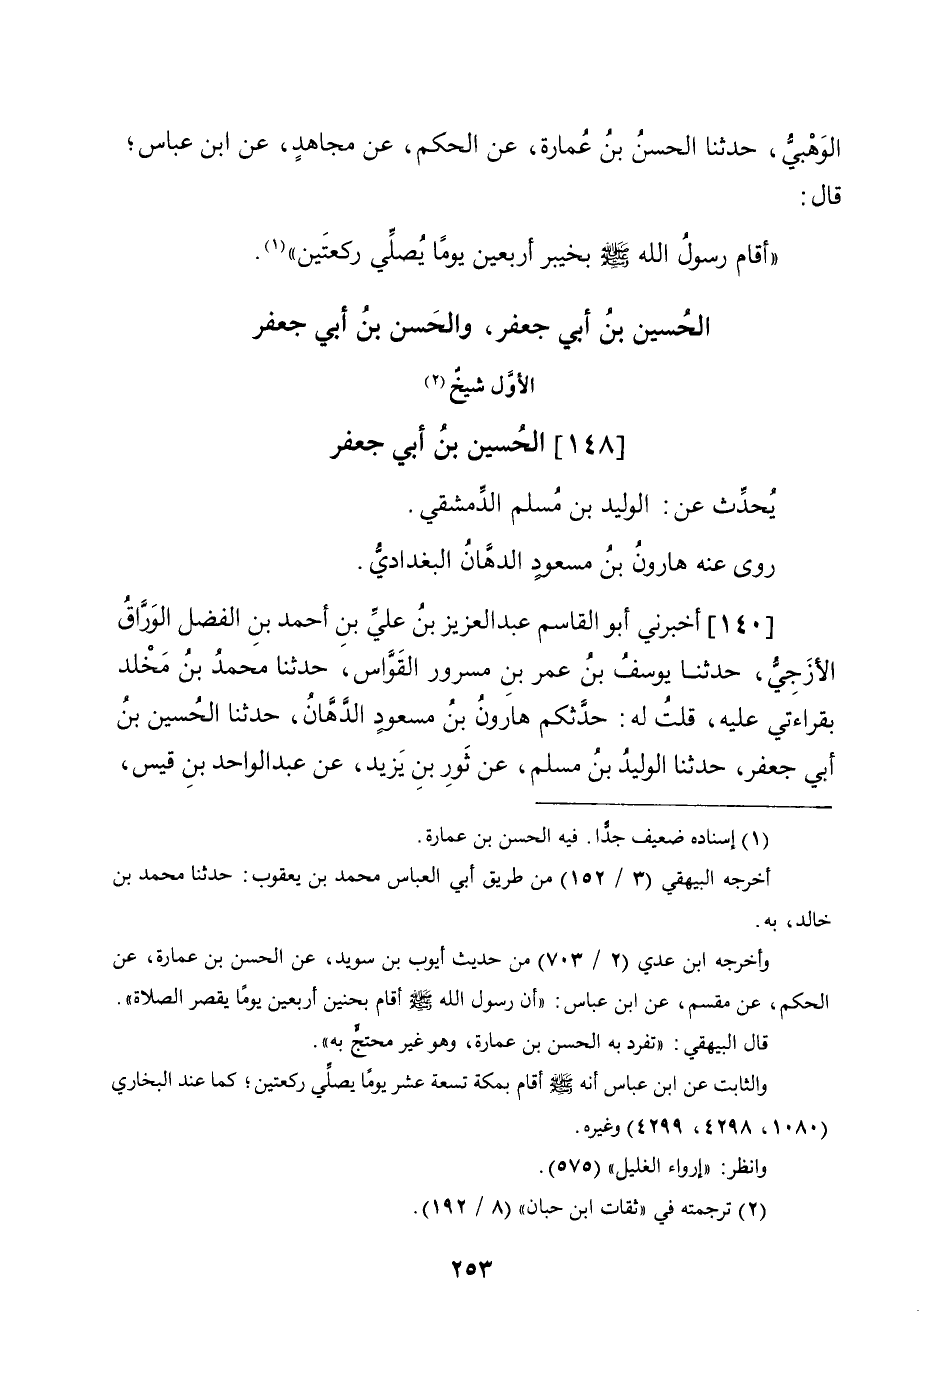 الوَهْبيُّ، حدثنا الحسنُ بنُ عُمارة، عن الحكم، عن مجاهدٍ، عن ابن عباس؛
قال:
«أقام رسولُ الله ﷺ بخيبر أربعين يومًا يُصلِّي ركعتَين»(١).
الحُسين بنُ أبي جعفر، والحَسن بنُ أبي جعفر
الأوَّل شيخٌ(٢)
[١٤٨] الحُسين بنُ أبي جعفر
يُحدِّث عن: الوليد بن مُسلم الدِّمشقي.
روى عنه هارونُ بنُ مسعودٍ الدهَّانُ البغداديُّ.
[١٤٠] أخبرني أبو القاسم عبدالعزيز بنُ عليِّ بنِ أحمد بنِ الفضل الوَرَّاقُ
الأزَجِيُّ، حدثنا يوسفُ بنُ عمر بنِ مسرور القَوَّاس، حدثنا محمدُ بنُ مَخْلد
بقراءتي عليه، قلتُ له: حدَّثكم هارونُ بنُ مسعودٍ الدَّهَّانُ، حدثنا الحُسين بنُ
أبي جعفر، حدثنا الوليدُ بنُ مسلم، عن ثَورِ بنِ يَزيد، عن عبدالواحد بنِ قيس،
(١) إسناده ضعيف جدًّا. فيه الحسن بن عمارة.
أخرجه البيهقي (٣ / ١٥٢) من طريق أبي العباس محمد بن يعقوب: حدثنا محمد بن
خالد، به.
وأخرجه ابن عدي (٢ / ٧٠٣) من حديث أيوب بن سويد، عن الحسن بن عمارة، عن
الحكم، عن مقسم، عن ابن عباس: «أن رسول الله ﷺ أقام بحنين أربعين يومًا يقصر الصلاة».
قال البيهقي: «تفرد به الحسن بن عمارة، وهو غير محتجٍّ به».
والثابت عن ابن عباس أنه ﷺ أقام بمكة تسعة عشر يومًا يصلِّي ركعتين؛ كما عند البخاري
(١٠٨٠، ٤٢٩٨، ٤٢٩٩) وغيره.
وانظر: «إرواء الغليل» (٥٧٥).
(٢) ترجمته في «ثقات ابن حبان» (٨ / ١٩٢).
٢٥٣